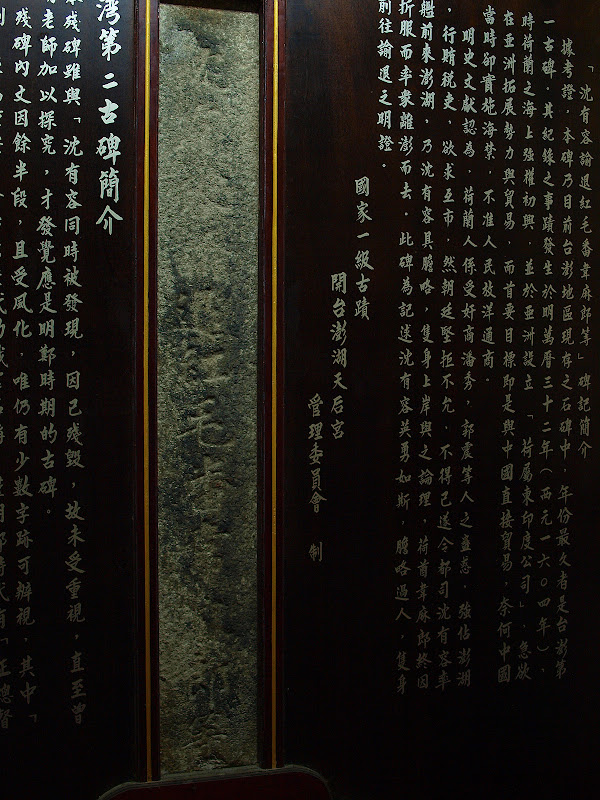 「沈有容諭退紅毛番韋麻郎等」碑記簡介
據考證，本碑乃目前台澎地區現存之石碑中，年份最久者是台澎第
一古碑，其紀錄之事蹟發生於明萬曆三十二年（西元一六０四年），
時荷蘭之海上強權初興，並於亞洲設立「荷屬東印度公司」，急欲
在亞洲拓展勢力與貿易，而首要目標即是與中國直接貿易，奈何中國
當時卻實施海禁，不准人民放洋通商。
明史文獻認為，荷蘭人係受奸商潘秀，郭震等人之蠱惑，強佔澎湖
，行賄稅吏，欲求互市，然朝廷堅拒不允，不得已遂令都司沈有容率
艦前來澎湖，乃沈有容具膽略，隻身上岸與之論理，荷酋韋麻郎終因
折服而率眾離澎而去，此碑為記述沈有容英勇如斯，膽略過人，隻身
前往諭退之明證。
國家一級古蹟
開台澎湖天后宮
管理委員會 制
退紅毛番
灣第二古碑簡介
殘碑雖與「沈有容同時被發現，因已殘毀，故未受重視，直至曾
老師加以探究，才發覺應是明鄭時期的古碑。
殘碑內文因餘半段，且受風化，唯仍有少數字跡可辨視，其中「